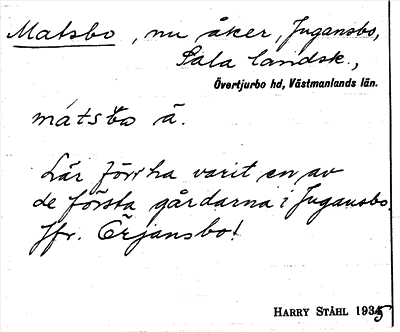 Matsbo, nu åker, Jugansbo,
Sala landsk.,
Övertjurbo hd, Västmanlands län.
mátsbo ä.
Lär förr ha varit en av
de första gårdarna i Jugansbo.
Jfr. Örjansbo!
HARRY STÅHL 1935